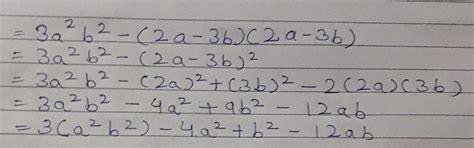 = 3a²b² - (2a - 3b)(2a - 3b)
= 3a²b² - (2a - 3b)²
= 3a²b² - (2a)² + (3b)² - 2(2a)(3b)
= 3a²b² - 4a² + 9b² - 12ab
= 3(a²b²) - 4a² + b² - 12ab